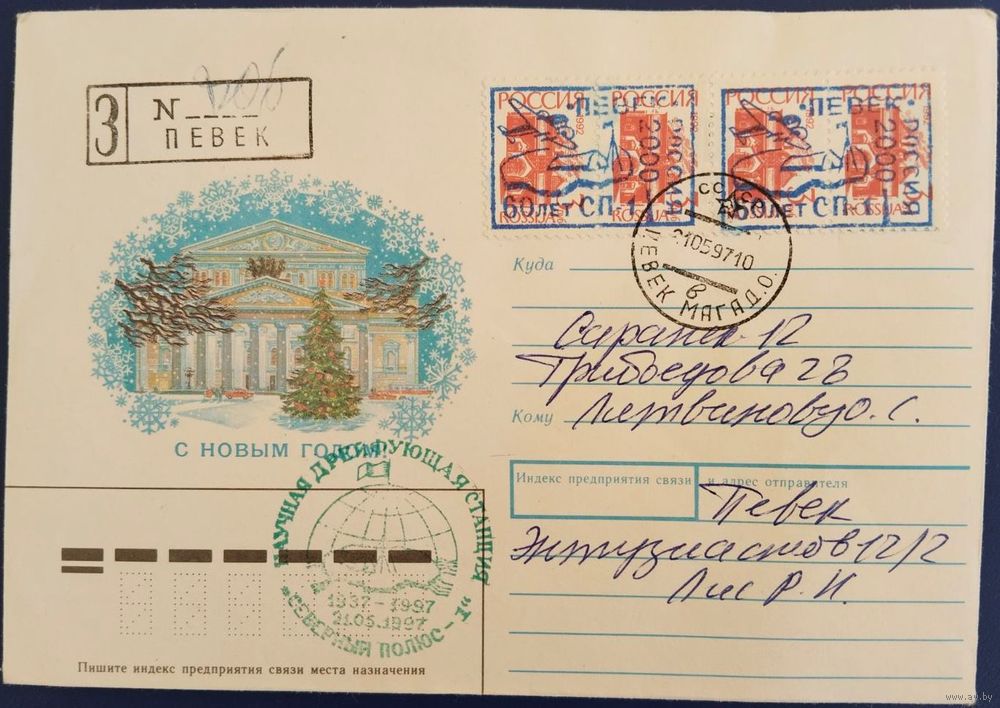 З N 306
ПЕВЕК
РОССИЯ 1992 РОССИЯ 1992
·ПЕВЕК· РОССИЯ
2000
60 ЛЕТ СП-1
ROSSIJA ROSSIJA
РОССИЯ 1992 РОССИЯ 1992
·ПЕВЕК· РОССИЯ
2000
60 ЛЕТ СП-1
ROSSIJA ROSSIJA
21059710
в
ПЕВЕК МАГАД.О.
Куда
Саранск 12
Грибоедова 28
Кому Литвинову О. С.
С НОВЫМ ГОДОМ!
Индекс предприятия связи и адрес отправителя
Певек
Энтузиастов 12/2
Лис Р. И.
НАУЧНАЯ ДРЕЙФУЮЩАЯ СТАНЦИЯ
1937-1997
21.05.1997
"СЕВЕРНЫЙ ПОЛЮС-1"
Пишите индекс предприятия связи места назначения
www.ay.by